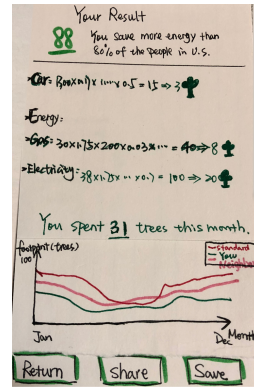 Your Result
88
You save more energy than
80% of the people in U.S.
Car: 300x1.17x....x0.5 = 15 ⇒ 3
Energy:
Gas: 30x1.75x200x0.03x... = 40 ⇒ 8
Electricity: 38x1.75x...x0.7 = 100 ⇒ 20
You spent 31 trees this month.
footprint (trees)
100
standard
You
Neighbor
Jan
Dec
Month
Return
Share
Save